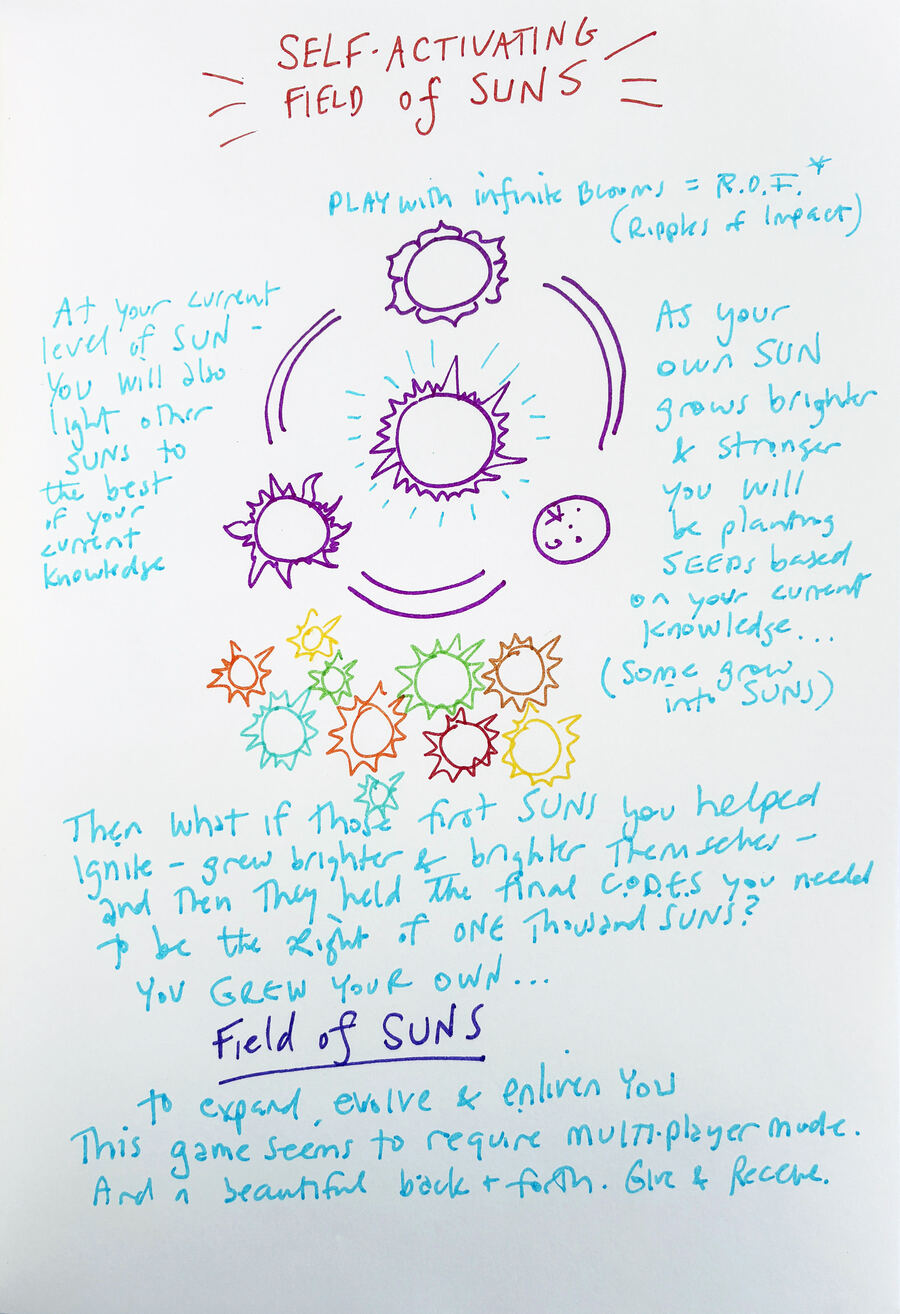 SELF-ACTIVATING
FIELD of SUNS
PLAY with infinite Blooms = R.O.I.*
(Ripples of Impact)
At your current
level of SUN -
You will also
light other
SUNS to
the best
of your
current
knowledge
As your
own SUN
grows brighter
& stronger
you will
be planting
SEEDS based
on your current
knowledge...
(Some grow
into SUNS)
Then what if those first SUNS you helped
Ignite - grew brighter & brighter Themselves -
and Then They held the final C.O.D.E.S you need
to be the Light of ONE Thousand SUNS?
YOU GREW YOUR OWN...
Field of SUNS
to expand, evolve & enliven You
This game seems to require multi-player mode.
And a beautiful back + forth. Give & Receive.